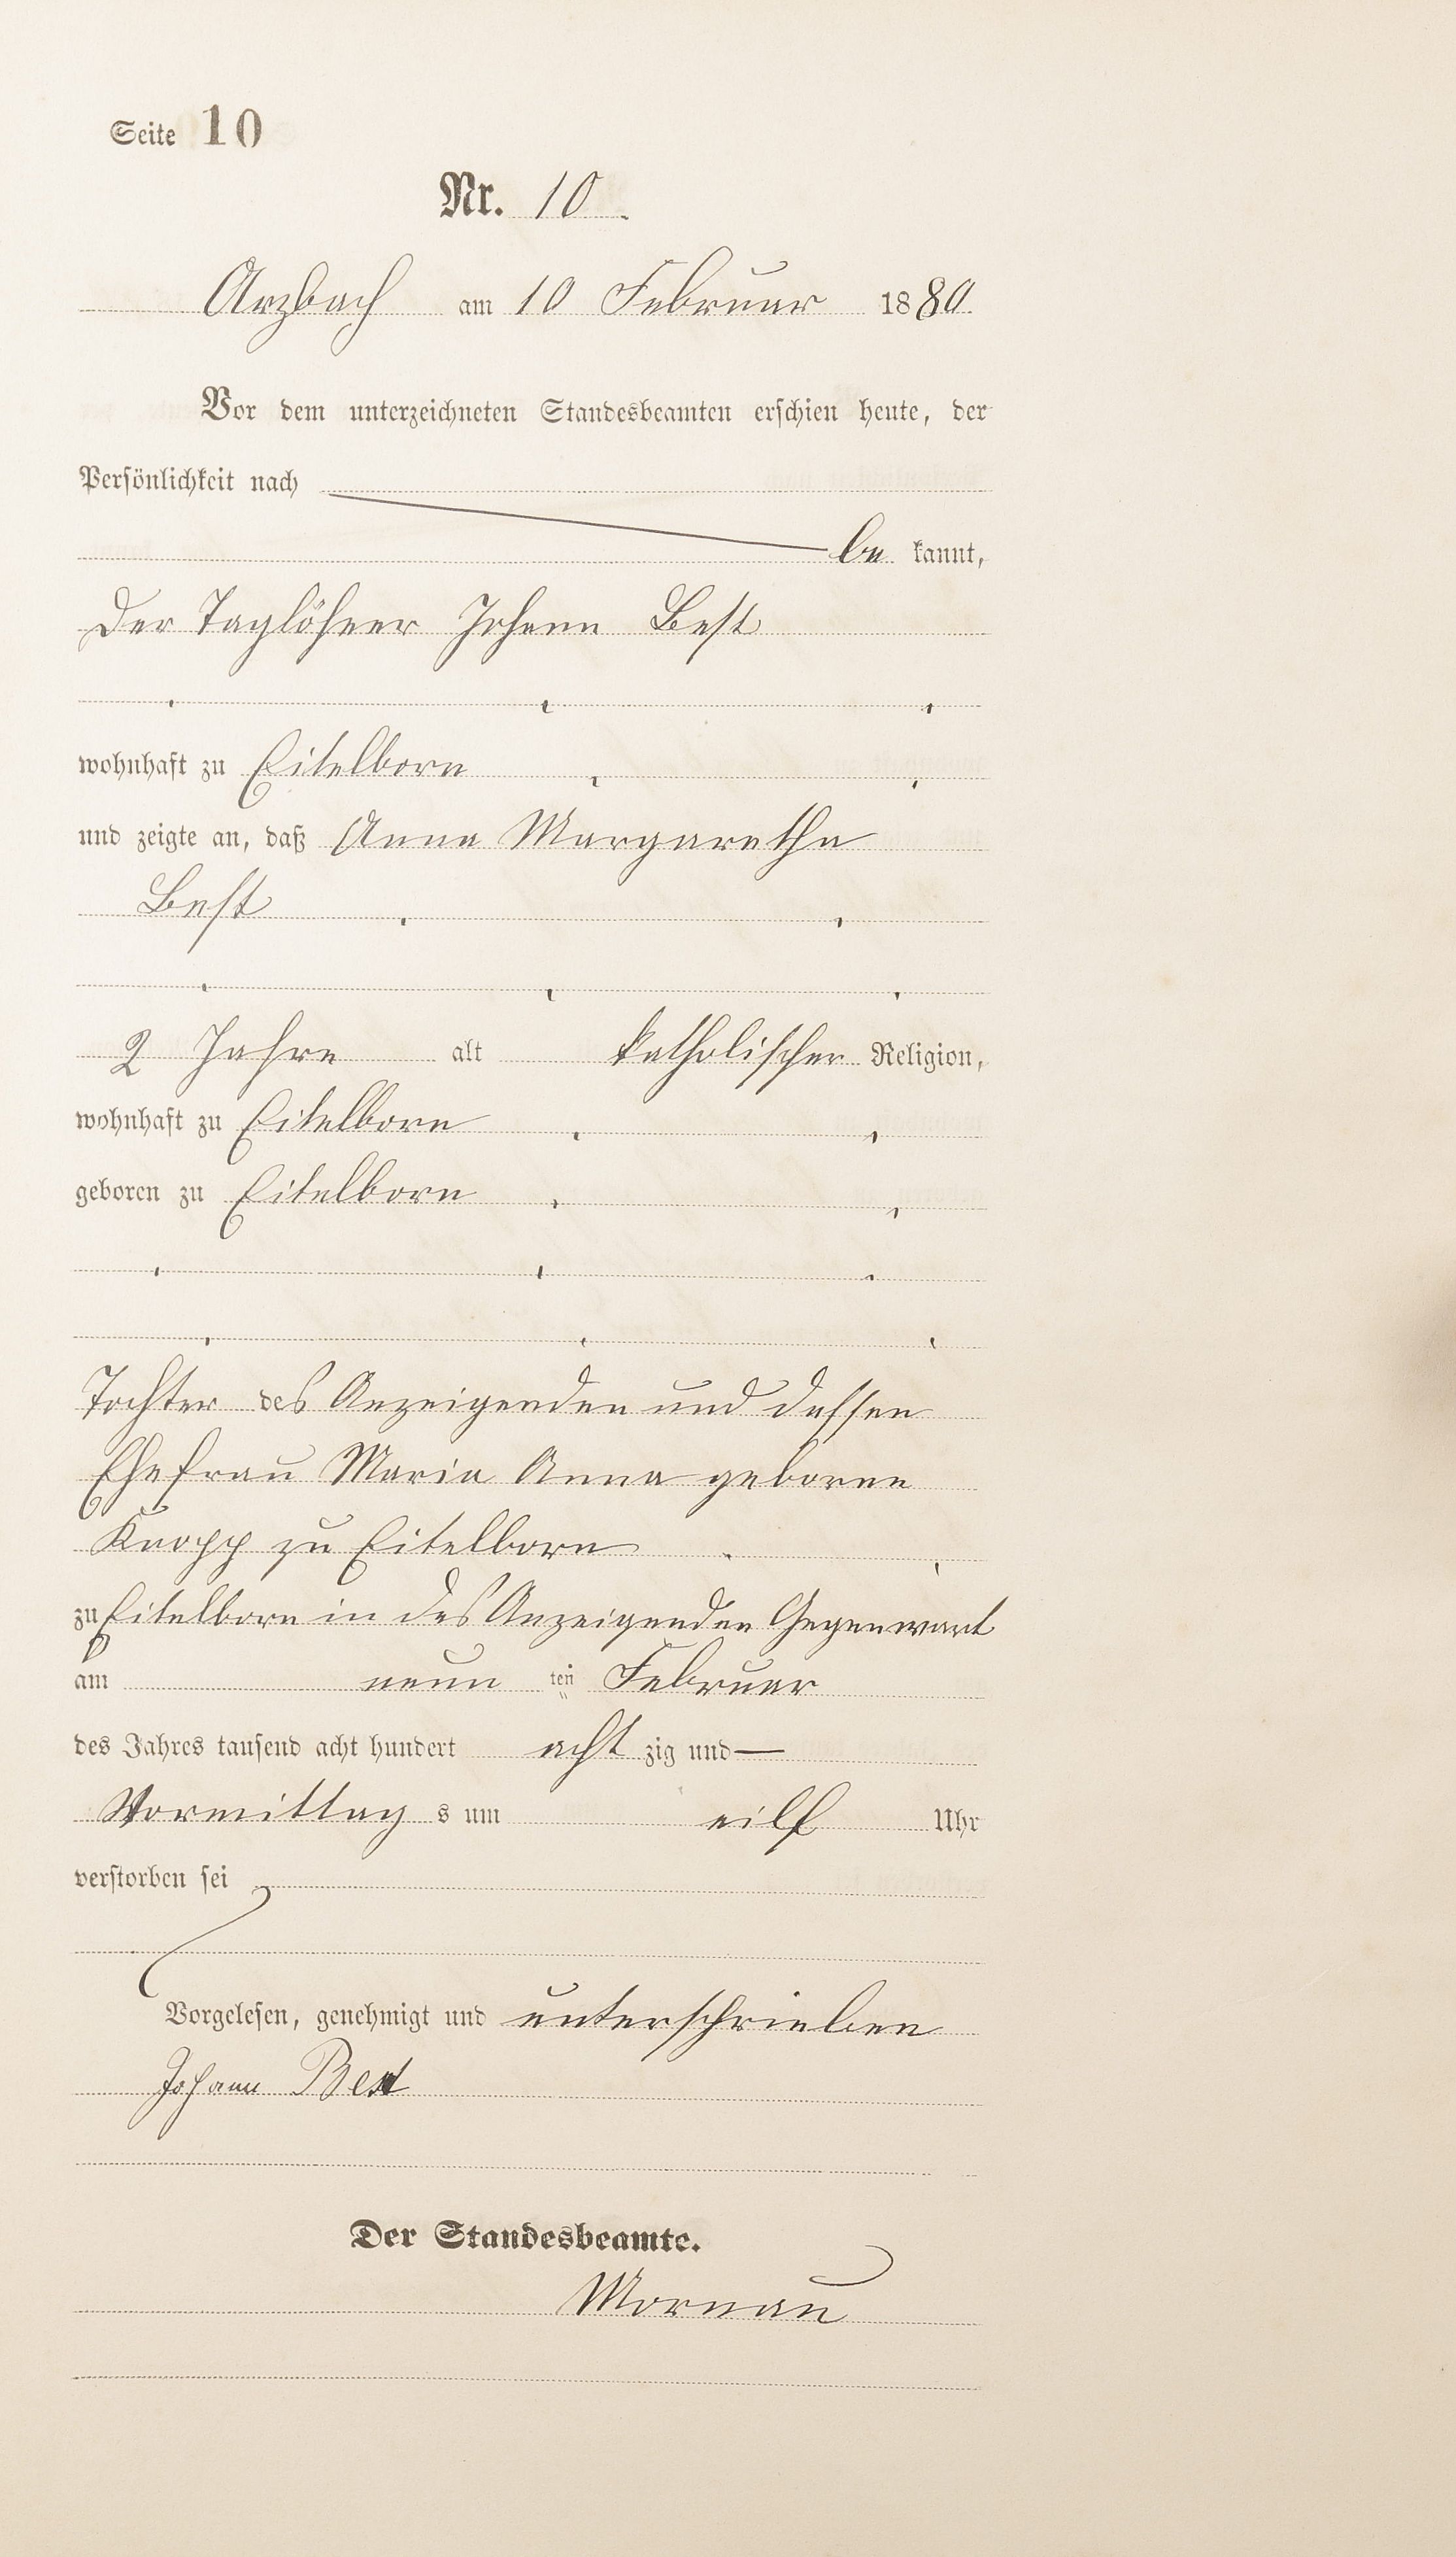 Seite 10
Nr. 10.
Arzbach am 10 Februar 1880.
Vor dem unterzeichneten Standesbeamten erschien heute, der
Persönlichkeit nach
be kannt,
Der Taglöhner Johann Best
wohnhaft zu Eitelborn
und zeigte an, daß Anna Margaretha
Best
2 Jahre alt katholischer Religion,
wohnhaft zu Eitelborn
geboren zu Eitelborn
Tochter des Anzeigenden und dessen
Ehefrau Maria Anna geborne
Knopp zu Eitelborn
zu Eitelborn in des Anzeigenden Gegenwart
am neun ten Februar
des Jahres tausend acht hundert acht zig und —
Vormittag s um eilf Uhr
verstorben sei
Vorgelesen, genehmigt und unterschrieben
Johann Best
Der Standesbeamte.
Mornau